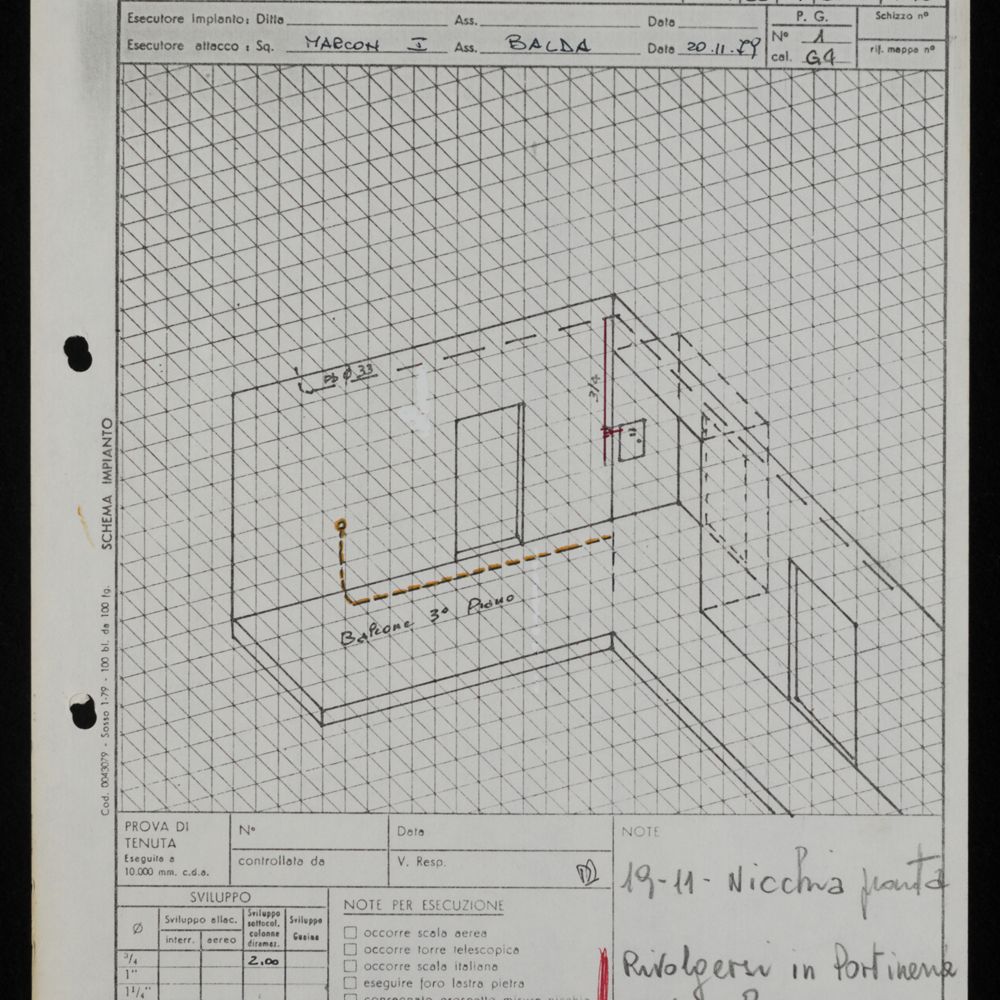 Esecutore Impianto: Ditta Ass. Data
P. G.
Schizzo n°
Esecutore attacco : Sq. MARCON I Ass. BALDA Data 20.11.79
N° 1
cal. G4
rif. mappa n°
SCHEMA IMPIANTO
Cod. 0043079 - Sasso 1-79 - 100 bl. da 100 fg.
Ø 33
3/4
Balcone 3° Piano
PROVA DI
TENUTA
Eseguita a
10.000 mm. c.d.a.
N°
Data
controllata da
V. Resp.
NOTE
19-11- Nicchia pronta
Rivolgersi in Portineria
SVILUPPO
Ø
Sviluppo allac.
interr.
aereo
Sviluppo
sottocol.
colonne
diramaz.
Sviluppo
Guaine
3/4 2,00
1"
1¼"
NOTE PER ESECUZIONE
occorre scala aerea
occorre torre telescopica
occorre scala italiana
eseguire foro lastra pietra